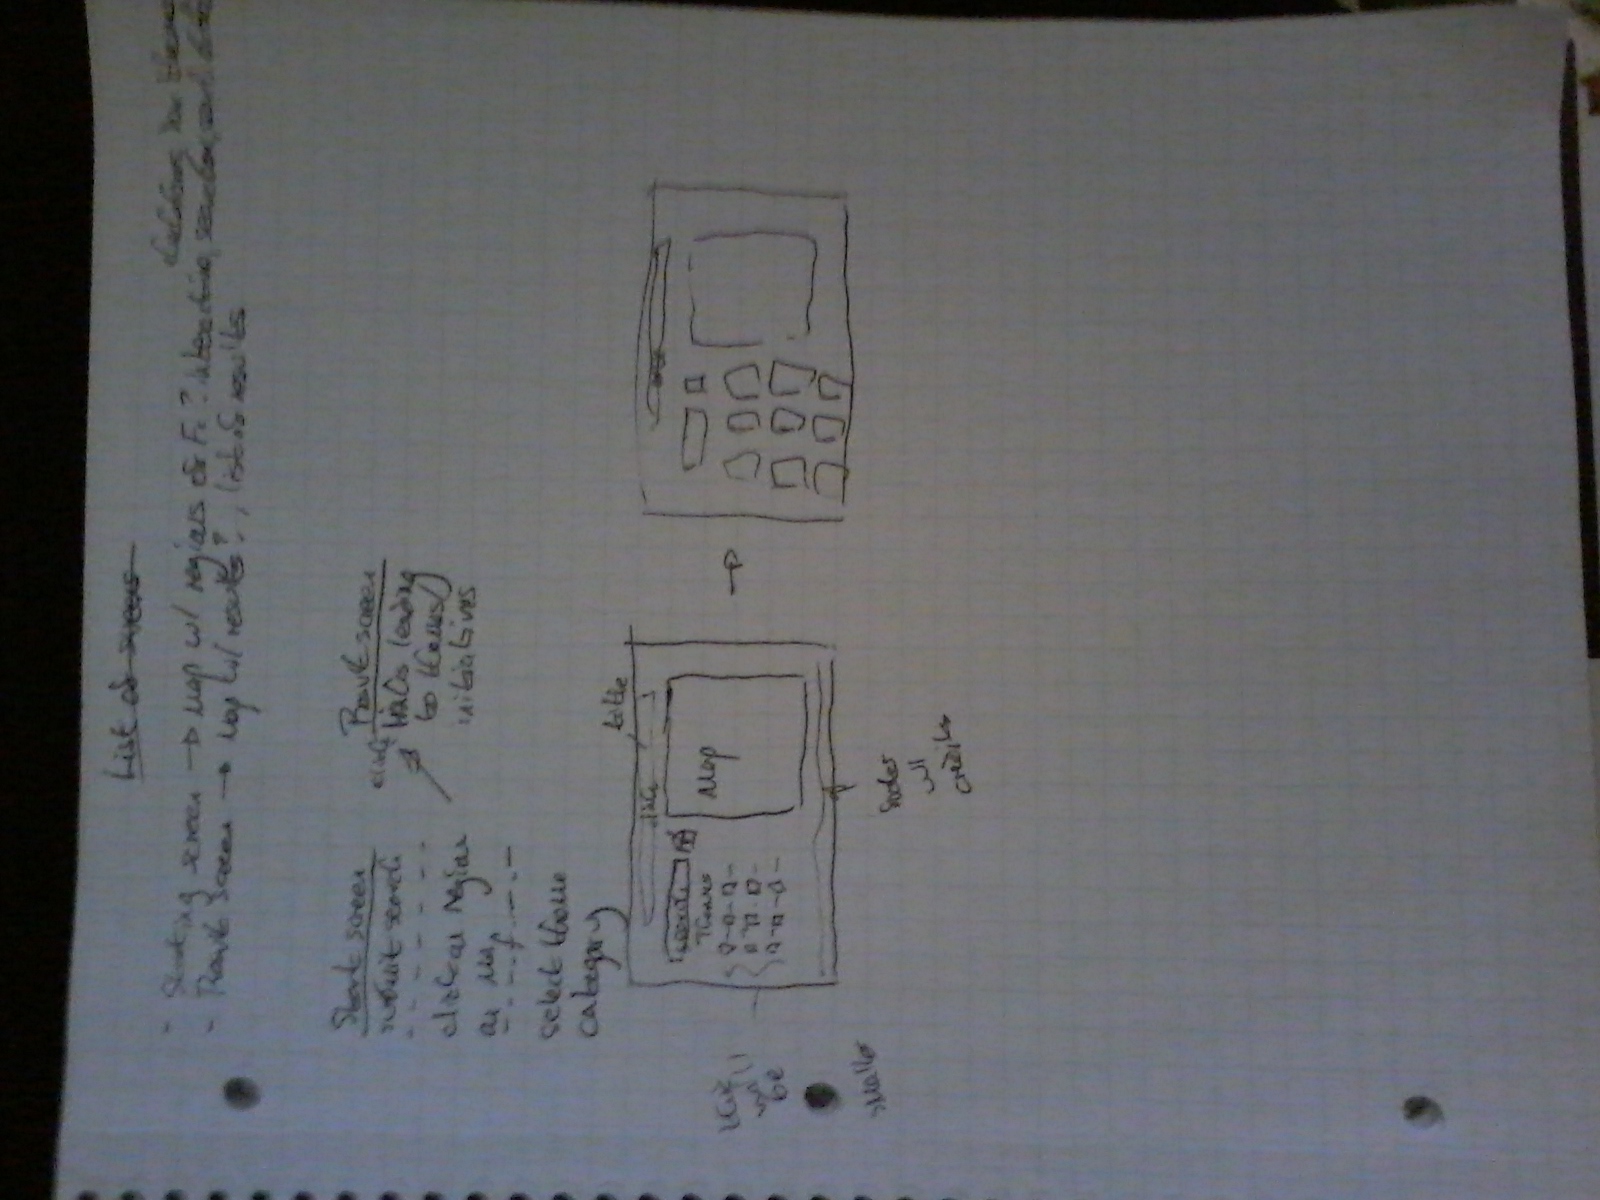 List of screens
- Starting screen → Map w/ regions of Fr? interactive, searchbox,
- Result Screen → Map w/ results?, list of results
Start screen
submit search
click on region
on Map
select theme
category
Result screen
click links leading
to themes/
initiatives
title
search
Themes
Map
this
will
be
smaller
footer
w/
credits